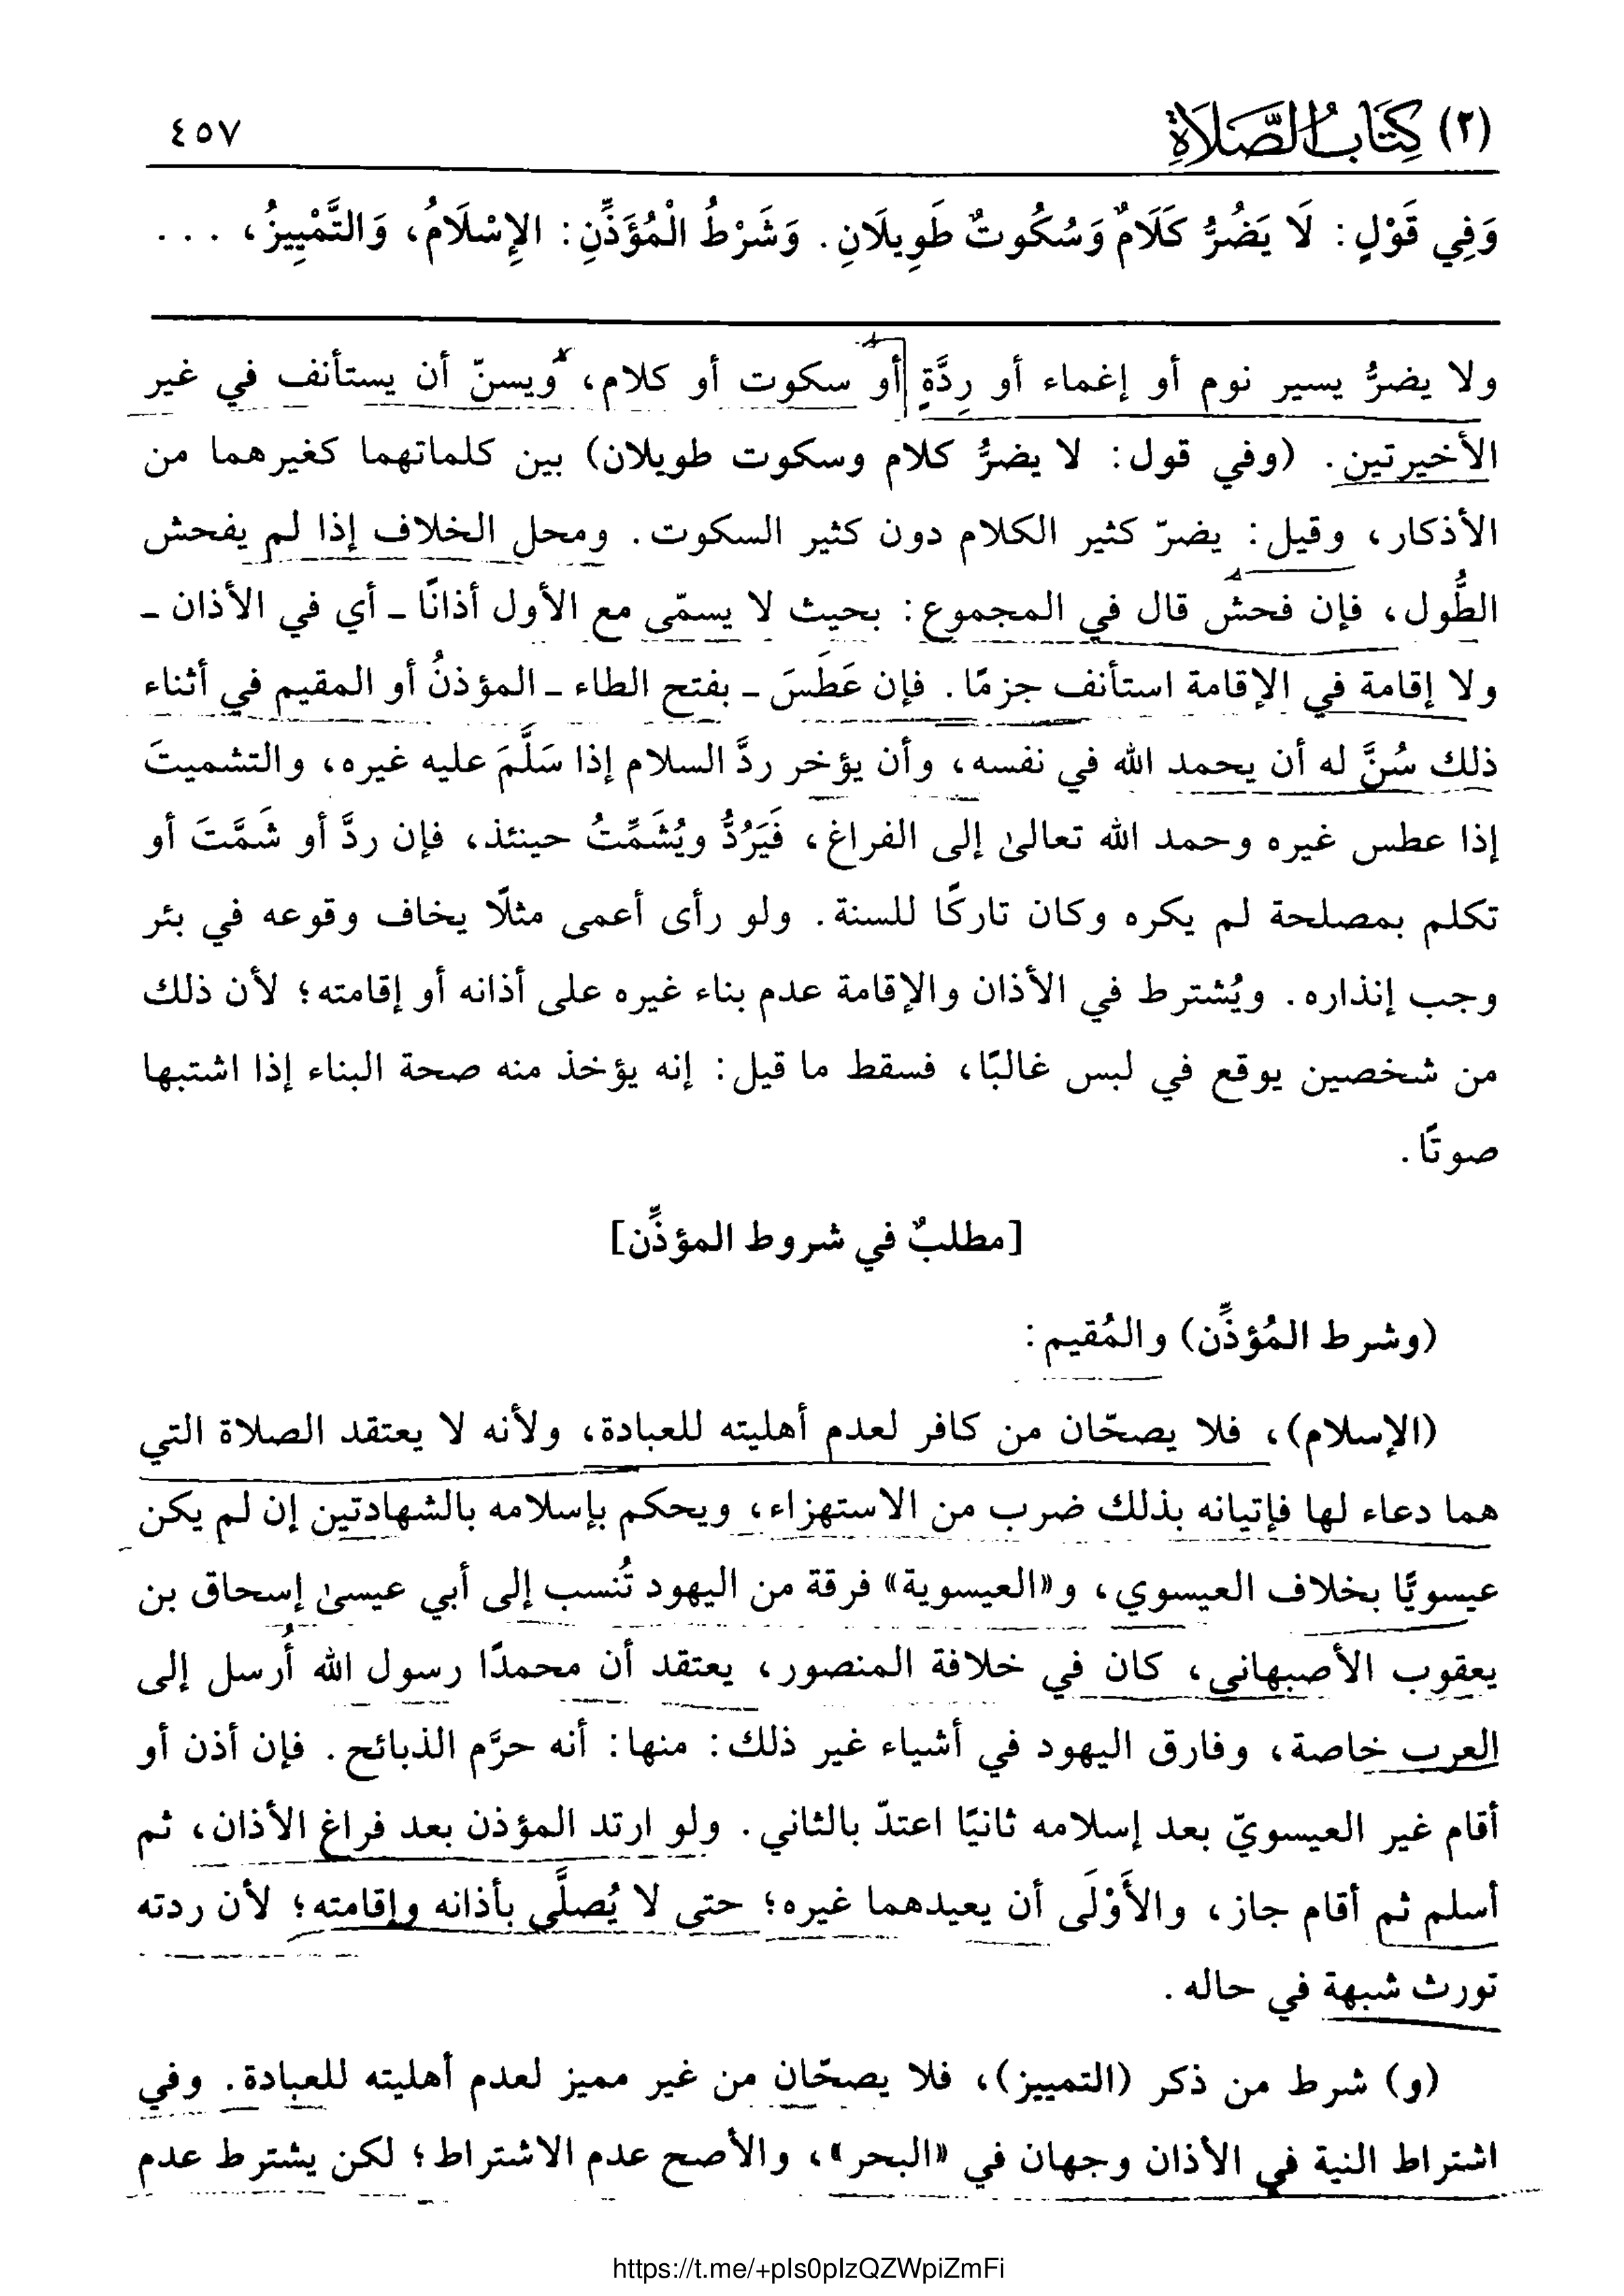 (٢) كِتَابُ الصَّلَاةِ ٤٥٧
وَفِي قَوْلٍ: لَا يَضُرُّ كَلَامٌ وَسُكُوتٌ طَوِيلَانِ. وَشَرْطُ الْمُؤَذِّنِ: الإِسْلَامُ، وَالتَّمْيِيزُ، ...
ولا يضرُّ يسير نوم أو إغماء أو رِدَّةٍ أو سكوت أو كلام، ويسنّ أن يستأنف في غير
الأخيرتين. (وفي قول: لا يضرُّ كلام وسكوت طويلان) بين كلماتهما كغيرهما من
الأذكار، وقيل: يضرّ كثير الكلام دون كثير السكوت. ومحل الخلاف إذا لم يفحش
الطُّول، فإن فحش قال في المجموع: بحيث لا يسمّى مع الأول أذانًا ـ أي في الأذان ـ
ولا إقامة في الإقامة استأنف جزمًا. فإن عَطَسَ ـ بفتح الطاء ـ المؤذنُ أو المقيم في أثناء
ذلك سُنَّ له أن يحمد الله في نفسه، وأن يؤخر ردَّ السلام إذا سَلَّمَ عليه غيره، والتشميتَ
إذا عطس غيره وحمد الله تعالىٰ إلى الفراغ، فَيَرُدُّ ويُشَمِّتُ حينئذ، فإن ردَّ أو شَمَّتَ أو
تكلم بمصلحة لم يكره وكان تاركًا للسنة. ولو رأى أعمى مثلًا يخاف وقوعه في بئر
وجب إنذاره. ويُشترط في الأذان والإقامة عدم بناء غيره على أذانه أو إقامته؛ لأن ذلك
من شخصين يوقع في لبس غالبًا، فسقط ما قيل: إنه يؤخذ منه صحة البناء إذا اشتبها
صوتًا.
[مطلبٌ في شروط المؤذِّن]
(وشرط المُؤذِّن) والمُقيم:
(الإسلام)، فلا يصحّان من كافر لعدم أهليته للعبادة، ولأنه لا يعتقد الصلاة التي
هما دعاء لها فإتيانه بذلك ضرب من الاستهزاء، ويحكم بإسلامه بالشهادتين إن لم يكن
عيسويًّا بخلاف العيسوي، و«العيسوية» فرقة من اليهود تُنسب إلى أبي عيسىٰ إسحاق بن
يعقوب الأصبهاني، كان في خلافة المنصور، يعتقد أن محمدًا رسول الله أُرسل إلى
العرب خاصة، وفارق اليهود في أشياء غير ذلك: منها: أنه حرَّم الذبائح. فإن أذن أو
أقام غير العيسويّ بعد إسلامه ثانيًا اعتدّ بالثاني. ولو ارتد المؤذن بعد فراغ الأذان، ثم
أسلم ثم أقام جاز، والأَوْلَى أن يعيدهما غيره؛ حتى لا يُصلَّى بأذانه وإقامته؛ لأن ردته
تورث شبهة في حاله.
(و) شرط من ذكر (التمييز)، فلا يصحّان من غير مميز لعدم أهليته للعبادة. وفي
اشتراط النية في الأذان وجهان في «البحر»، والأصح عدم الاشتراط؛ لكن يشترط عدم
https://t.me/+pIs0pIzQZWpiZmFi